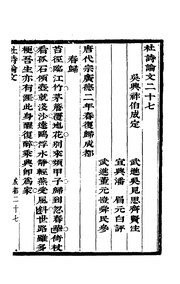 杜詩論文二十七
吳興祚伯成定
武進吳見思齊賢注
宜興潘眉元白評
武進董元愷舜民參
唐代宗廣德二年春復歸成都
春歸
苔徑臨江竹茅簷覆地花別來頻甲子歸到忽春華倚杖
看孤石傾壺就淺沙遠鷗浮水靜輕燕受風斜世路雖多
梗吾生亦有涯此身醒復醉乘興即為家
杜詩論文
二十七